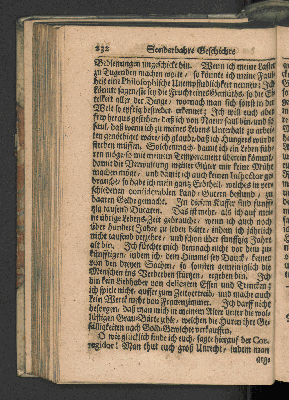 232 Sonderbahre Geschichte
Bedienungen ungeschickt bin. Wenn ich meine Laster
zu Tugenden machen wolte, so könnte ich meine Faul-
heit eine Philosophische Unempfindlichkeit nennen: Ich
könnte sagen, sie sey die Frucht eines Gemüths, so die Ei-
telkeit aller der Dinge, wornach man sich sonst in der
Welt so eyfrig bestrebet, erkennet; Ich will euch aber
frey heraus gestehen, daß ich von Natur faul bin, und so
faul, daß wann ich zu meines Lebens Unterhalt zu arbei-
ten genöthiget wäre, ich glaube, daß ich Hungers würde
sterben müssen. Solchemnach, damit ich ein Leben füh-
ren möge, so mit meinem Temperament überein kommt,
damit die Verwaltung meiner Güter mir keine Mühe
machen möge, und damit ich auch keinen Inspector ge-
brauche, so habe ich mein ganz Erbtheil, welches in ver-
schiedenen considerablen Land-Gütern bestund, zu
baarem Golde gemacht. In diesem Kuffer sind funff-
zig tausend Ducaten. Das ist mehr, als ich auf mei-
ne übrige Lebens-Zeit gebrauche, wenn ich auch noch
über hundert Jahre zu leben hätte, indem ich jährlich
nicht tausend verzehre, und schon über funffzig Jahre
alt bin. Ich fürchte mich demnach nicht vor dem zu-
künfftigen, indem ich, dem Himmel sey Danck, keiner
von den dreyen Sachen, so sonsten gemeiniglich die
Menschen ins Verderben stürtzen, ergeben bin. Ich
bin kein Liebhaber von delicatem Essen und Trincken;
ich spiele nicht, ausser zum Zeitvertreib, und mache auch
kein Werck mehr von Frauenzimmer. Ich darf nicht
besorgen, daß man mich in meinem Alter unter die wol-
lüstigen Grau-Bärte zehle, welchen die Huren ihre Ge-
fälligkeiten nach Gold-Gewichte verkauffen.
O wie glücklich finde ich euch, sagte hierauf der Cor-
regidor! Man thut euch groß Unrecht, indem man
arg-